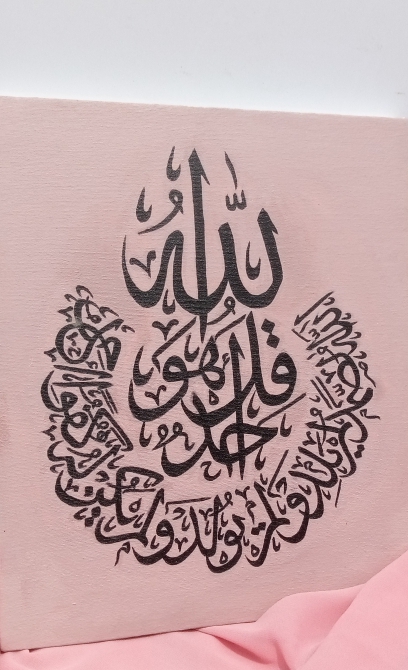 قل هو
الله
أحد
الله الصمد لم يلد ولم يولد ولم يكن له كفوا أحد